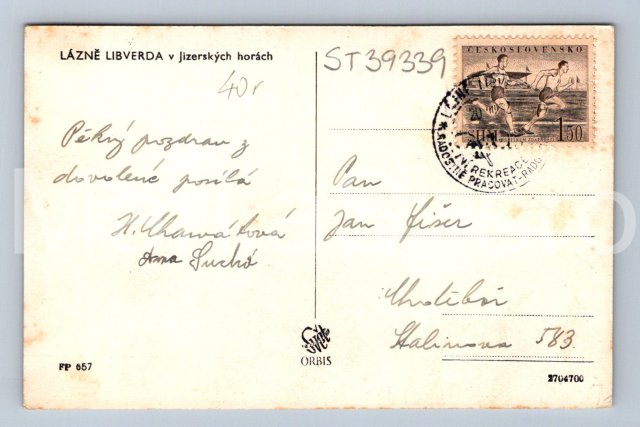 LÁZNĚ LIBVERDA v Jizerských horách
ST39339
40r
ČESKOSLOVENSKO
1.50
REKREACE
RADOSTNĚ PRACOVAT-RADO
Pěkný pozdrav z
dovolené posílá
H. Charvátová
Suchá
Pan
Jan Fišer
Chotěboř
Stalinova 583
Svět
ORBIS
FP 657
2704700